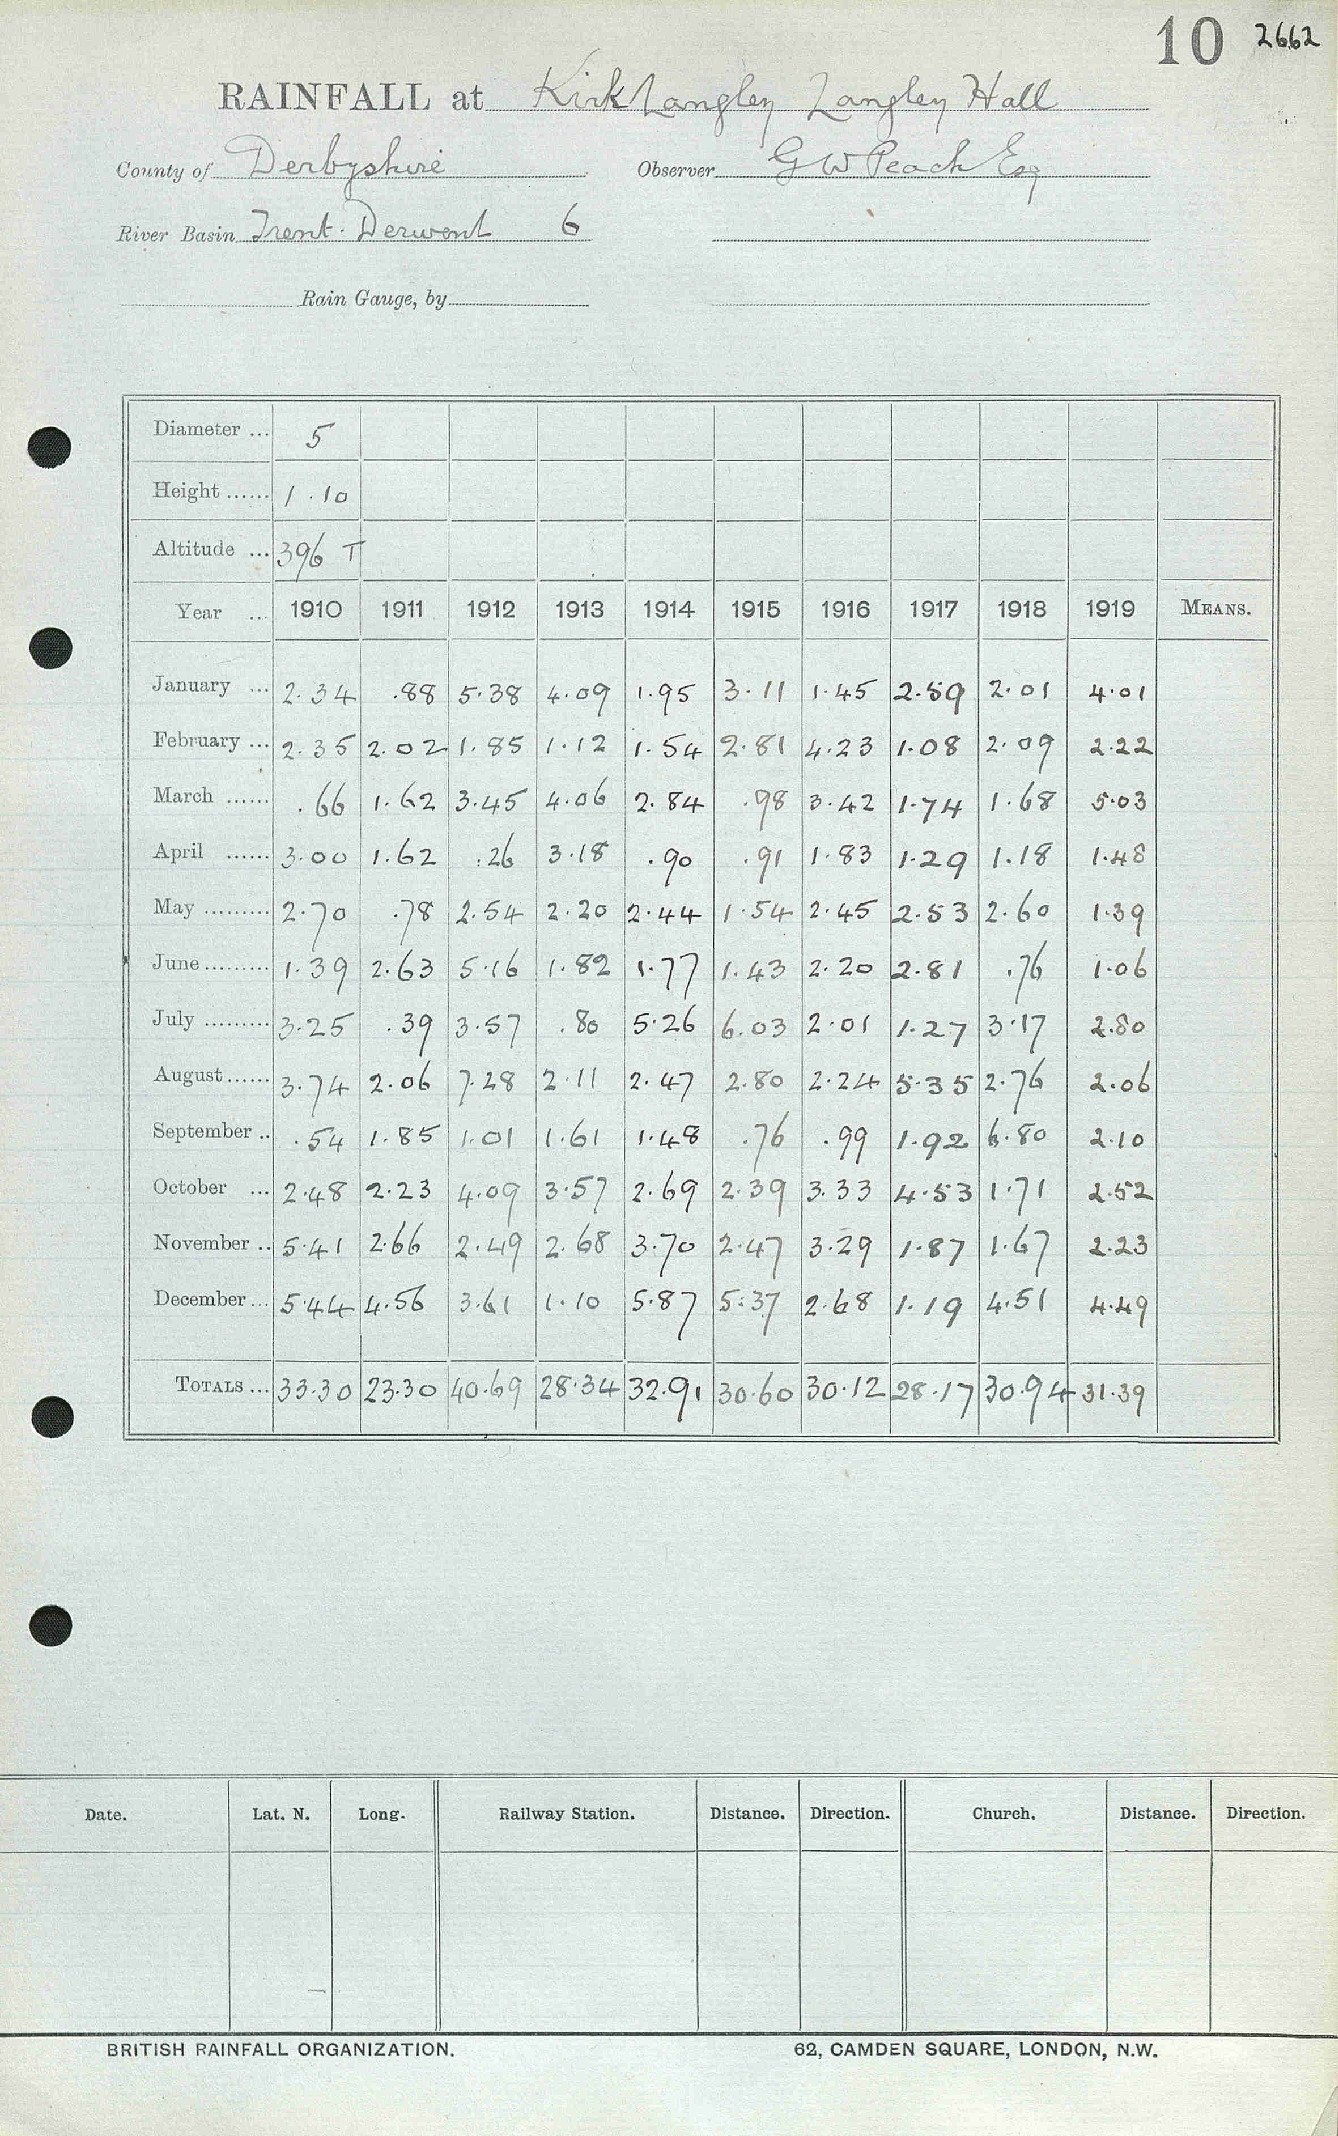 10 2662
RAINFALL at Kirk Langley Langley Hall
County of Derbyshire Observer G W Peach Esq
River Basin Trent. Derwent 6
Rain Gauge, by
Diameter ... 5
Height ...... 1.10
Altitude ... 396 T
Year ... 1910 1911 1912 1913 1914 1915 1916 1917 1918 1919 MEANS.
January ... 2.34 .88 5.38 4.09 1.95 3.11 1.45 2.59 2.01 4.01
February ... 2.35 2.02 1.85 1.12 1.54 2.81 4.23 1.08 2.09 2.22
March ...... .66 1.62 3.45 4.06 2.84 .98 3.42 1.74 1.68 5.03
April ...... 3.00 1.62 .26 3.18 .90 .91 1.83 1.29 1.18 1.48
May ......... 2.70 .78 2.54 2.20 2.44 1.54 2.45 2.53 2.60 1.39
June ......... 1.39 2.63 5.16 1.82 1.77 1.43 2.20 2.81 .76 1.06
July ......... 3.25 .39 3.57 .80 5.26 6.03 2.01 1.27 3.17 2.80
August ...... 3.74 2.06 7.28 2.11 2.47 2.80 2.24 5.35 2.76 2.06
September .. .54 1.85 1.01 1.61 1.48 .76 .99 1.92 6.80 2.10
October ... 2.48 2.23 4.09 3.57 2.69 2.39 3.33 4.53 1.71 2.52
November .. 5.41 2.66 2.49 2.68 3.70 2.47 3.29 1.87 1.67 2.23
December ... 5.44 4.56 3.61 1.10 5.87 5.37 2.68 1.19 4.51 4.49
TOTALS ... 33.30 23.30 40.69 28.34 32.91 30.60 30.12 28.17 30.94 31.39
Date. Lat. N. Long. Railway Station. Distance. Direction. Church. Distance. Direction.
BRITISH RAINFALL ORGANIZATION. 62, CAMDEN SQUARE, LONDON, N.W.